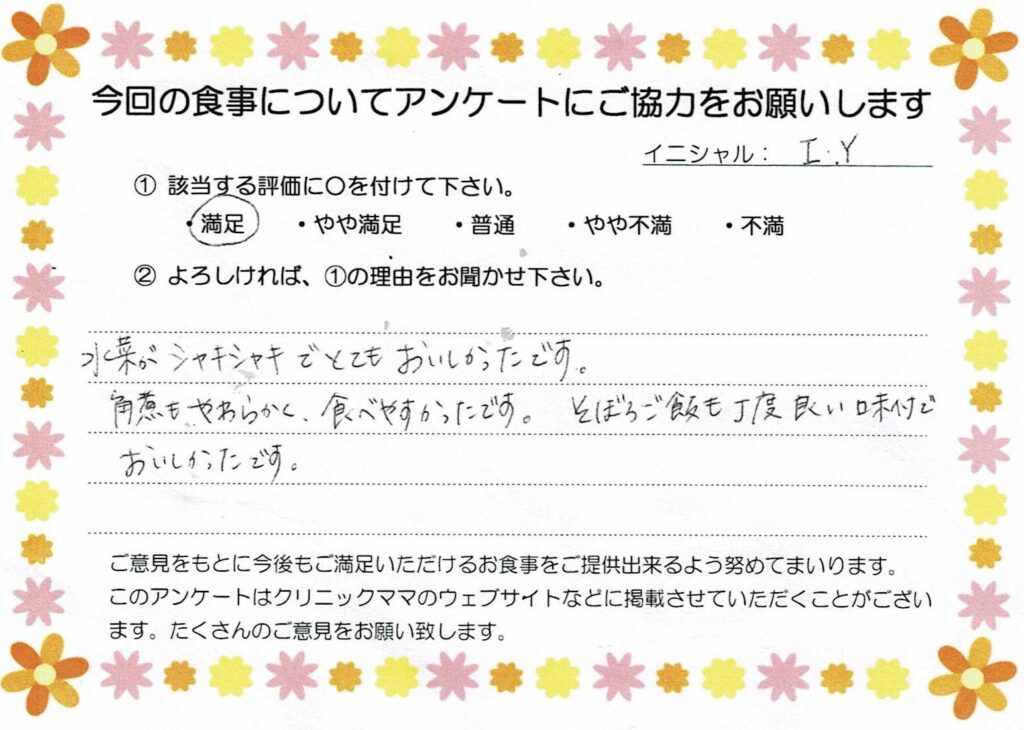 今回の食事についてアンケートにご協力をお願いします
イニシャル： I.Y
① 該当する評価に〇を付けて下さい。
・満足 ・やや満足 ・普通 ・やや不満 ・不満
② よろしければ、①の理由をお聞かせ下さい。
水菜がシャキシャキでとてもおいしかったです。
角煮もやわらかく、食べやすかったです。 そぼろご飯も丁度良い味付で
おいしかったです。
ご意見をもとに今後もご満足いただけるお食事をご提供出来るよう努めてまいります。
このアンケートはクリニックママのウェブサイトなどに掲載させていただくことがござい
ます。たくさんのご意見をお願い致します。